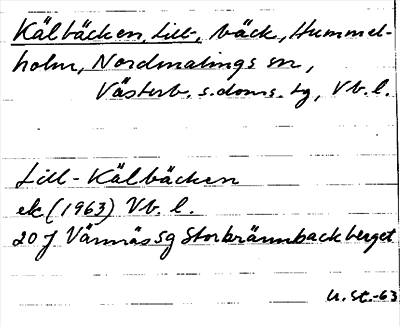 Kälbäcken, Lill-, bäck, Hummel-
holm, Nordmalings sn,
Västerb. s. doms. tg, Vb. l.
Lill-Kälbäcken
ek (1963) Vb. l.
20 J Vännäs sg Storbrännbackberget
U. St.-63